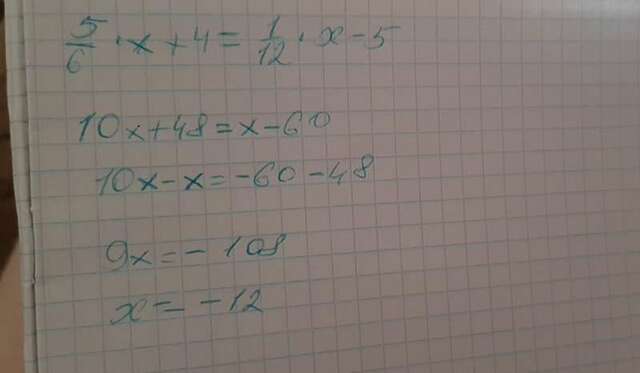 5/6 · x + 4 = 1/12 · x - 5
10x + 48 = x - 60
10x - x = -60 - 48
9x = -108
x = -12